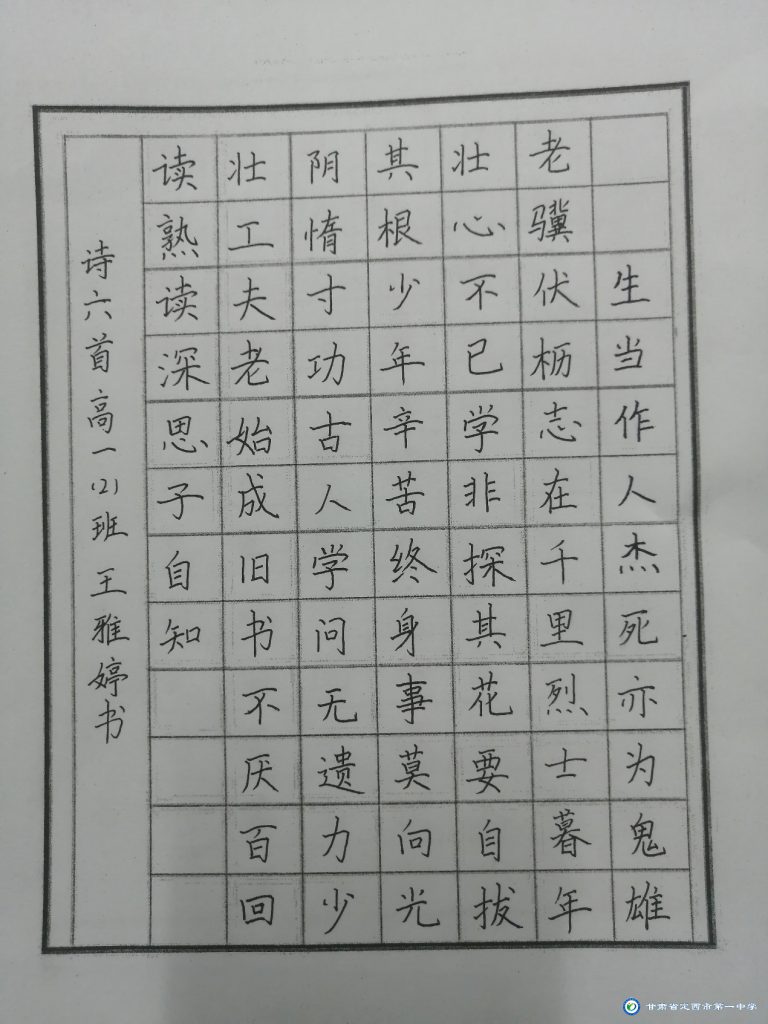 生当作人杰死亦为鬼雄
老骥伏枥志在千里烈士暮年
壮心不已学非探其花要自拔
其根少年辛苦终身事莫向光
阴惰寸功古人学问无遗力少
壮工夫老始成旧书不厌百回
读熟读深思子自知
诗六首高一(2)班王雅婷书
甘肃省定西市第一中学